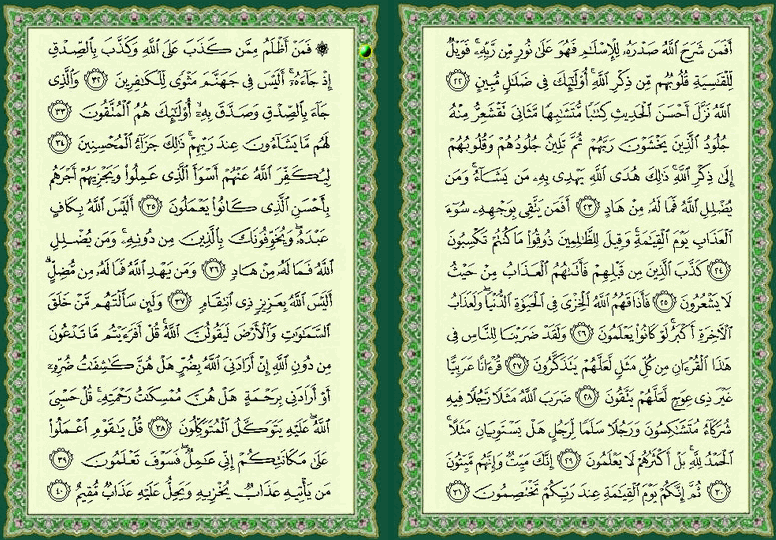 أَفَمَن شَرَحَ ٱللَّهُ صَدْرَهُۥ لِلْإِسْلَٰمِ فَهُوَ عَلَىٰ نُورٍ مِّن رَّبِّهِۦ ۚ فَوَيْلٌ
لِّلْقَٰسِيَةِ قُلُوبُهُم مِّن ذِكْرِ ٱللَّهِ ۚ أُو۟لَٰٓئِكَ فِى ضَلَٰلٍ مُّبِينٍ ﴿٢٢﴾
ٱللَّهُ نَزَّلَ أَحْسَنَ ٱلْحَدِيثِ كِتَٰبًا مُّتَشَٰبِهًا مَّثَانِىَ تَقْشَعِرُّ مِنْهُ
جُلُودُ ٱلَّذِينَ يَخْشَوْنَ رَبَّهُمْ ثُمَّ تَلِينُ جُلُودُهُمْ وَقُلُوبُهُمْ
إِلَىٰ ذِكْرِ ٱللَّهِ ۚ ذَٰلِكَ هُدَى ٱللَّهِ يَهْدِى بِهِۦ مَن يَشَآءُ ۚ وَمَن
يُضْلِلِ ٱللَّهُ فَمَا لَهُۥ مِنْ هَادٍ ﴿٢٣﴾ أَفَمَن يَتَّقِى بِوَجْهِهِۦ سُوٓءَ
ٱلْعَذَابِ يَوْمَ ٱلْقِيَٰمَةِ ۚ وَقِيلَ لِلظَّٰلِمِينَ ذُوقُوا۟ مَا كُنتُمْ تَكْسِبُونَ
﴿٢٤﴾ كَذَّبَ ٱلَّذِينَ مِن قَبْلِهِمْ فَأَتَىٰهُمُ ٱلْعَذَابُ مِنْ حَيْثُ
لَا يَشْعُرُونَ ﴿٢٥﴾ فَأَذَاقَهُمُ ٱللَّهُ ٱلْخِزْىَ فِى ٱلْحَيَوٰةِ ٱلدُّنْيَا ۖ وَلَعَذَابُ
ٱلْءَاخِرَةِ أَكْبَرُ ۚ لَوْ كَانُوا۟ يَعْلَمُونَ ﴿٢٦﴾ وَلَقَدْ ضَرَبْنَا لِلنَّاسِ فِى
هَٰذَا ٱلْقُرْءَانِ مِن كُلِّ مَثَلٍ لَّعَلَّهُمْ يَتَذَكَّرُونَ ﴿٢٧﴾ قُرْءَانًا عَرَبِيًّا
غَيْرَ ذِى عِوَجٍ لَّعَلَّهُمْ يَتَّقُونَ ﴿٢٨﴾ ضَرَبَ ٱللَّهُ مَثَلًا رَّجُلًا فِيهِ
شُرَكَآءُ مُتَشَٰكِسُونَ وَرَجُلًا سَلَمًا لِّرَجُلٍ هَلْ يَسْتَوِيَانِ مَثَلًا ۚ
ٱلْحَمْدُ لِلَّهِ ۚ بَلْ أَكْثَرُهُمْ لَا يَعْلَمُونَ ﴿٢٩﴾ إِنَّكَ مَيِّتٌ وَإِنَّهُم مَّيِّتُونَ
﴿٣٠﴾ ثُمَّ إِنَّكُمْ يَوْمَ ٱلْقِيَٰمَةِ عِندَ رَبِّكُمْ تَخْتَصِمُونَ ﴿٣١﴾
۞ فَمَنْ أَظْلَمُ مِمَّن كَذَبَ عَلَى ٱللَّهِ وَكَذَّبَ بِٱلصِّدْقِ
إِذْ جَآءَهُۥٓ ۚ أَلَيْسَ فِى جَهَنَّمَ مَثْوًى لِّلْكَٰفِرِينَ ﴿٣٢﴾ وَٱلَّذِى
جَآءَ بِٱلصِّدْقِ وَصَدَّقَ بِهِۦٓ ۙ أُو۟لَٰٓئِكَ هُمُ ٱلْمُتَّقُونَ ﴿٣٣﴾
لَهُم مَّا يَشَآءُونَ عِندَ رَبِّهِمْ ۚ ذَٰلِكَ جَزَآءُ ٱلْمُحْسِنِينَ ﴿٣٤﴾
لِيُكَفِّرَ ٱللَّهُ عَنْهُمْ أَسْوَأَ ٱلَّذِى عَمِلُوا۟ وَيَجْزِيَهُمْ أَجْرَهُم
بِأَحْسَنِ ٱلَّذِى كَانُوا۟ يَعْمَلُونَ ﴿٣٥﴾ أَلَيْسَ ٱللَّهُ بِكَافٍ
عَبْدَهُۥ ۖ وَيُخَوِّفُونَكَ بِٱلَّذِينَ مِن دُونِهِۦ ۚ وَمَن يُضْلِلِ
ٱللَّهُ فَمَا لَهُۥ مِنْ هَادٍ ﴿٣٦﴾ وَمَن يَهْدِ ٱللَّهُ فَمَا لَهُۥ مِن مُّضِلٍّ ۗ
أَلَيْسَ ٱللَّهُ بِعَزِيزٍ ذِى ٱنتِقَامٍ ﴿٣٧﴾ وَلَئِن سَأَلْتَهُم مَّنْ خَلَقَ
ٱلسَّمَٰوَٰتِ وَٱلْأَرْضَ لَيَقُولُنَّ ٱللَّهُ ۚ قُلْ أَفَرَءَيْتُم مَّا تَدْعُونَ
مِن دُونِ ٱللَّهِ إِنْ أَرَادَنِىَ ٱللَّهُ بِضُرٍّ هَلْ هُنَّ كَٰشِفَٰتُ ضُرِّهِۦٓ
أَوْ أَرَادَنِى بِرَحْمَةٍ هَلْ هُنَّ مُمْسِكَٰتُ رَحْمَتِهِۦ ۚ قُلْ حَسْبِىَ
ٱللَّهُ ۖ عَلَيْهِ يَتَوَكَّلُ ٱلْمُتَوَكِّلُونَ ﴿٣٨﴾ قُلْ يَٰقَوْمِ ٱعْمَلُوا۟
عَلَىٰ مَكَانَتِكُمْ إِنِّى عَٰمِلٌ ۖ فَسَوْفَ تَعْلَمُونَ ﴿٣٩﴾
مَن يَأْتِيهِ عَذَابٌ يُخْزِيهِ وَيَحِلُّ عَلَيْهِ عَذَابٌ مُّقِيمٌ ﴿٤٠﴾